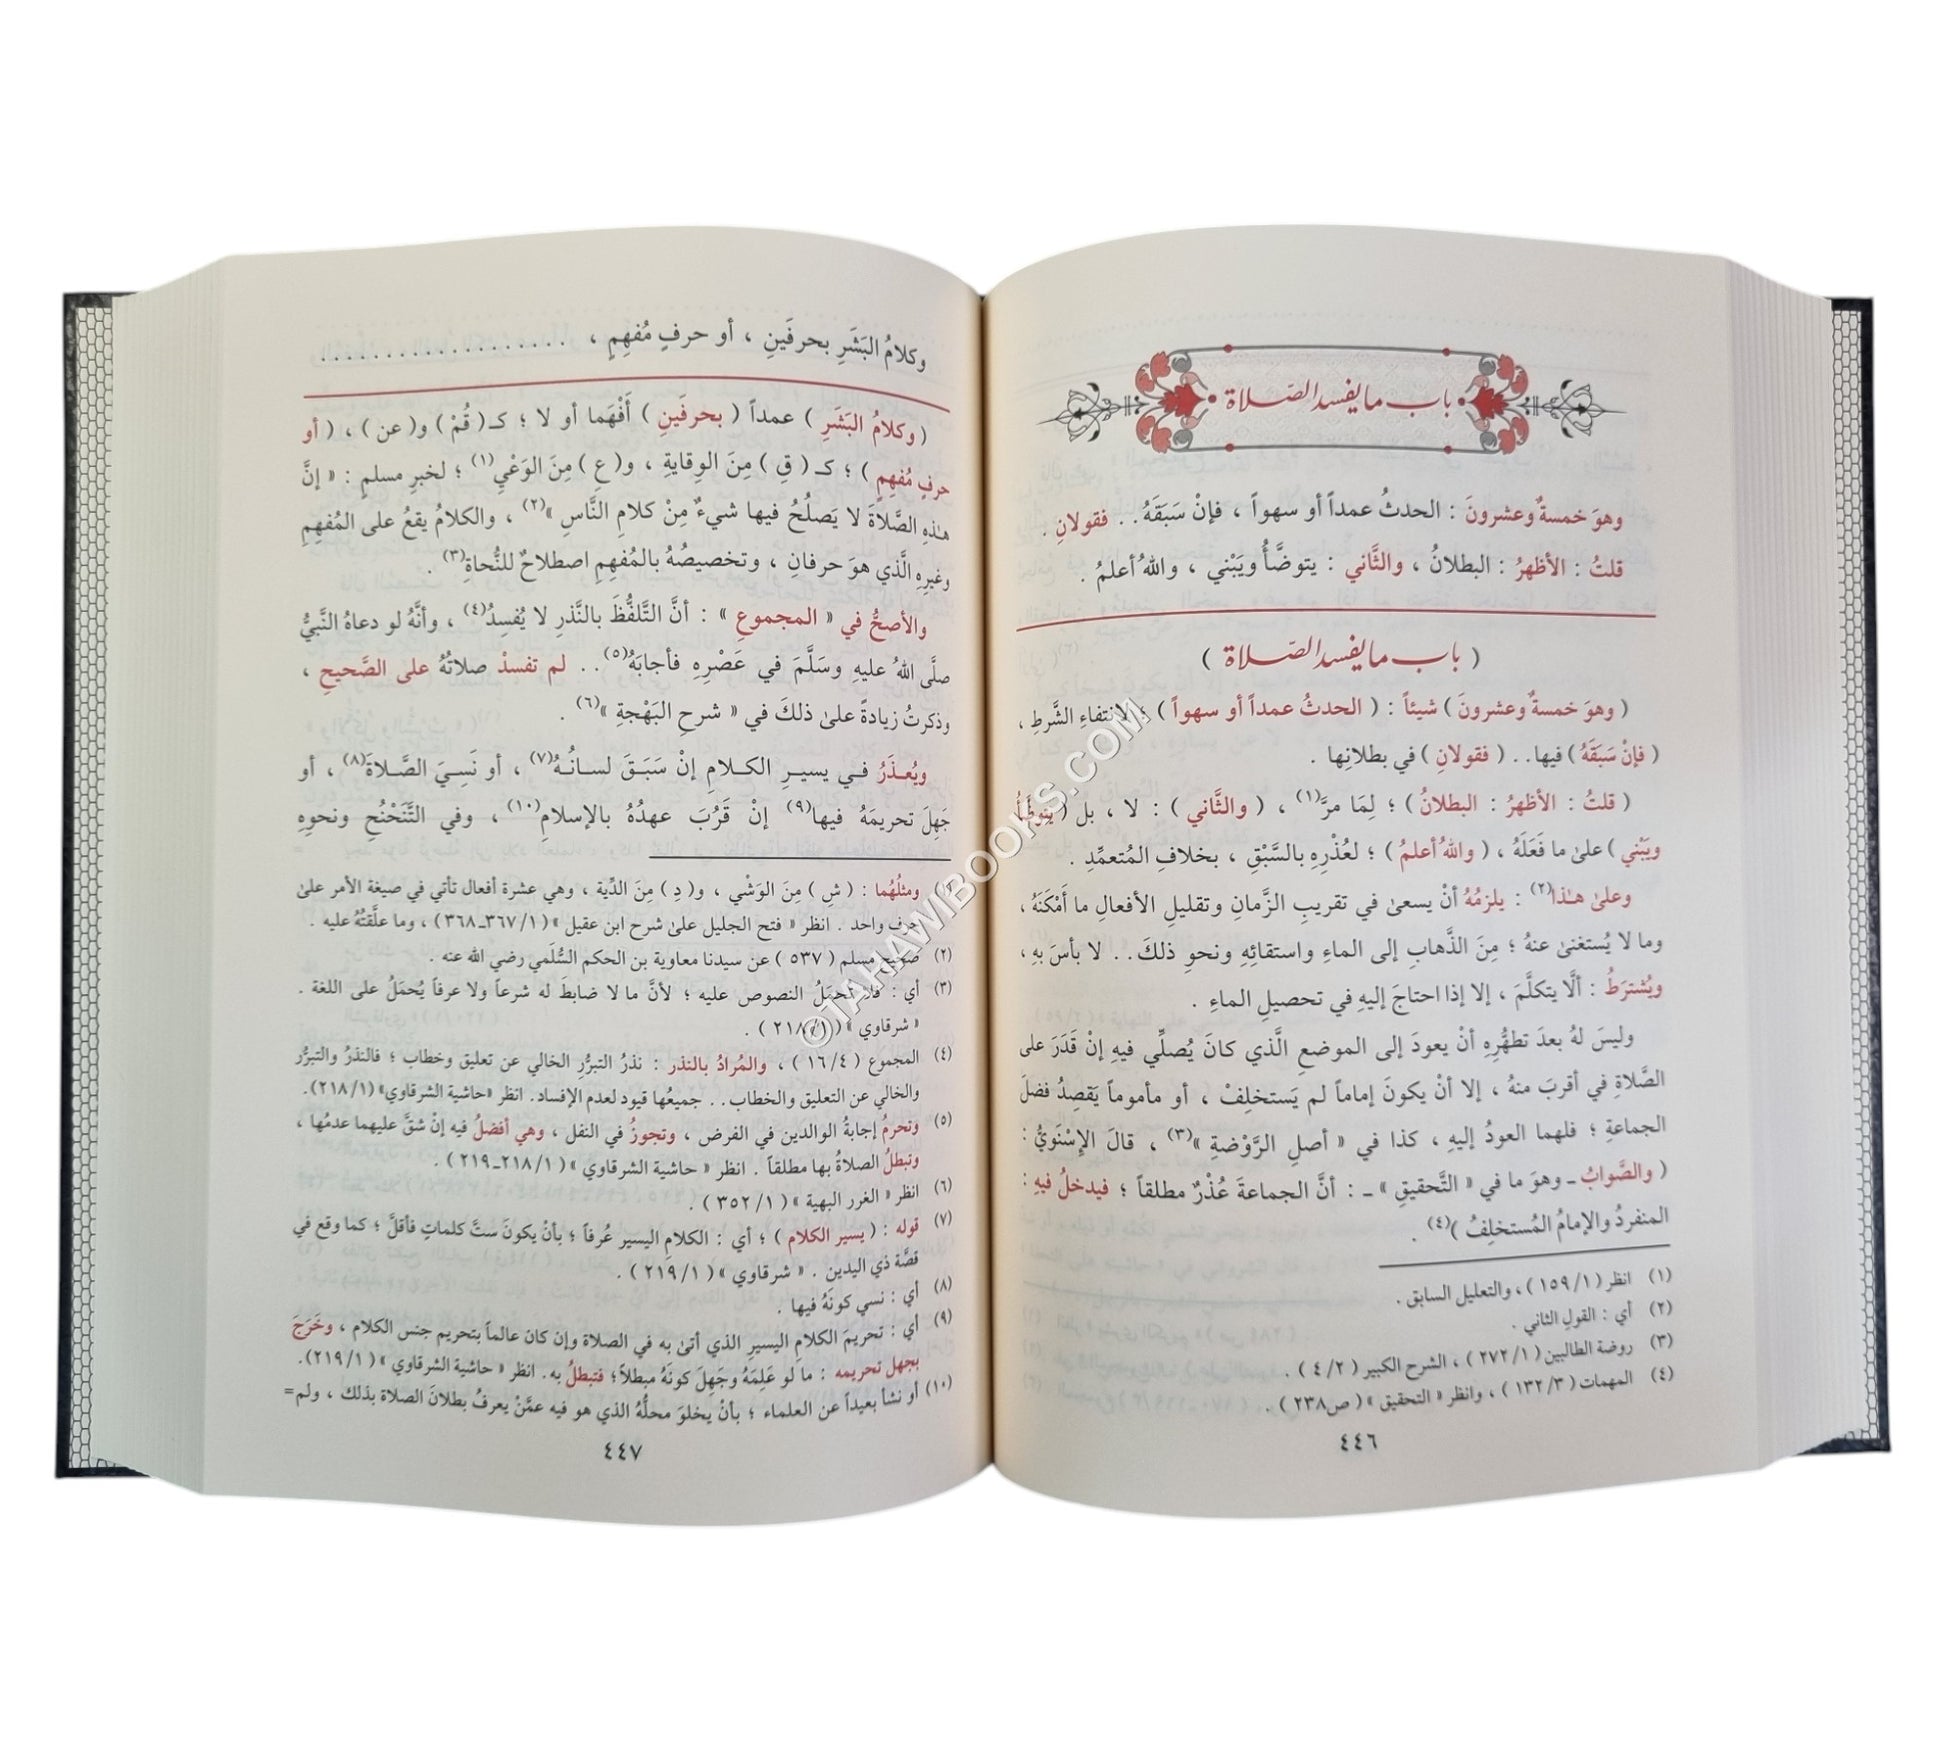 باب ما يفسد الصّلاة
وهوَ خمسةٌ وعشرونَ : الحدثُ عمداً أو سهواً ، فإنْ سَبَقَهُ . . فقولانِ .
قلتُ : الأظهرُ : البطلانُ ، والثَّاني : يتوضَّأُ ويَبْني ، واللهُ أعلمُ .
( باب ما يفسد الصّلاة )
( وهوَ خمسةٌ وعشرونَ ) شيئاً : ( الحدثُ عمداً أو سهواً ) ؛ لانتفاءِ الشَّرطِ ،
( فإنْ سَبَقَهُ ) فيها . . ( فقولانِ ) في بطلانِها .
( قلتُ : الأظهرُ : البطلانُ ) ؛ لِمَا مرَّ(١) ، ( والثَّاني ) : لا ، بل ( يتوضَّأُ
ويَبْني ) علىٰ ما فَعَلَهُ ، ( واللهُ أعلمُ ) ؛ لعُذْرِهِ بالسَّبْقِ ، بخلافِ المُتعمِّدِ .
وعلىٰ هـٰذا(٢) : يلزمُهُ أنْ يسعىٰ في تقريبِ الزَّمانِ وتقليلِ الأفعالِ ما أَمْكَنَهُ ،
وما لا يُستغنىٰ عنهُ ؛ مِنَ الذَّهابِ إلى الماءِ واستقائِهِ ونحوِ ذلكَ . . لا بأسَ بهِ ،
ويُشترَطُ : ألَّا يتكلَّمَ ، إلا إذا احتاجَ إليهِ في تحصيلِ الماءِ .
وليسَ لهُ بعدَ تطهُّرِهِ أنْ يعودَ إلى الموضعِ الَّذي كانَ يُصلِّي فيهِ إنْ قَدَرَ على
الصَّلاةِ في أقربَ منهُ ، إلا أنْ يكونَ إماماً لم يَستخلِفْ ، أو مأموماً يَقصِدُ فضلَ
الجماعةِ ؛ فلهما العودُ إليهِ ، كذا في « أصلِ الرَّوْضةِ »(٣) ، قالَ الإِسْنَويُّ :
( والصَّوابُ ـ وهوَ ما في « التَّحقيقِ » ـ : أنَّ الجماعةَ عُذْرٌ مطلقاً ؛ فيدخلُ فيهِ :
المنفردُ والإمامُ المُستخلِفُ )(٤) .
(١) انظر ( ١/ ١٥٩ ) ، والتعليل السابق .
(٢) أي : القولِ الثاني .
(٣) روضة الطالبين ( ١/ ٢٧٢ ) ، الشرح الكبير ( ٢/ ٤ ) .
(٤) المهمات ( ٣/ ١٣٢ ) ، وانظر « التحقيق » ( ص٢٣٨ ) .
٤٤٦
وكلامُ البَشَرِ بحرفَينِ ، أو حرفٍ مُفهِمٍ ، . . . . . . . . . . . . . . . . . . .
( وكلامُ البَشَرِ ) عمداً ( بحرفَينِ ) أَفْهَما أو لا ؛ كـ( قُمْ ) و( عن ) ، ( أو
حرفٍ مُفهِمٍ ) ؛ كـ ( قِ ) مِنَ الوِقايةِ ، و( عِ ) مِنَ الوَعْيِ(١) ؛ لخبرِ مسلمٍ : « إنَّ
هـٰذهِ الصَّلاةَ لا يَصلُحُ فيها شيءٌ مِنْ كلامِ النَّاسِ »(٢) ، والكلامُ يقعُ على المُفهِمِ
وغيرِهِ الَّذي هوَ حرفانِ ، وتخصيصُهُ بالمُفهِمِ اصطلاحٌ للنُّحاةِ(٣) .
والأصحُّ في « المجموعِ » : أنَّ التَّلفُّظَ بالنَّذرِ لا يُفسِدُ(٤) ، وأنَّهُ لو دعاهُ النَّبيُّ
صلَّى اللهُ عليهِ وسَلَّمَ في عَصْرِهِ فأجابَهُ(٥) . . لم تفسدْ صلاتُهُ على الصَّحيحِ ،
وذكرتُ زيادةً علىٰ ذلكَ في « شرحِ البَهْجةِ »(٦) .
ويُعـذَرُ فـي يسيـرِ الكـلامِ إنْ سَبَـقَ لسـانُـهُ(٧) ، أو نَسِـيَ الصَّـلاةَ(٨) ، أو
جَهِلَ تحريمَهُ فيها(٩) إنْ قَرُبَ عهدُهُ بالإسلامِ(١٠) ، وفي التَّنَحْنُحِ ونحوِهِ
ومثلُهُما : ( شِ ) مِنَ الوَشْيِ ، و( دِ ) مِنَ الدِّية ، وهي عشرة أفعال تأتي في صيغة الأمر علىٰ
حرف واحد . انظر « فتح الجليل علىٰ شرح ابن عقيل » ( ١/ ٣٦٧ـ٣٦٨ ) ، وما علَّقتُهُ عليه .
(٢) صحيح مسلم ( ٥٣٧ ) عن سيدنا معاوية بن الحكم السُّلَمي رضي الله عنه .
(٣) أي : فلا تُحمَلُ النصوص عليه ؛ لأنَّ ما لا ضابطَ له شرعاً ولا عرفاً يُحمَلُ على اللغة .
« شرقاوي » ( ١/ ٢١٨ ) .
(٤) المجموع ( ٤/ ١٦ ) ، والمُرادُ بالنذر : نذرُ التبرُّر الخالي عن تعليق وخطاب ؛ فالنذرُ والتبرُّر
والخالي عن التعليق والخطاب . . جميعُها قيود لعدم الإفساد. انظر «حاشية الشرقاوي» (١/ ٢١٨).
(٥) وتحرمُ إجابةُ الوالدين في الفرض ، وتجوزُ في النفل ، وهي أفضلُ فيه إنْ شقَّ عليهما عدمُها ،
وتبطلُ الصلاةُ بها مطلقاً . انظر « حاشية الشرقاوي » ( ١/ ٢١٨ـ٢١٩ ) .
(٦) انظر « الغرر البهية » ( ١/ ٣٥٢ ) .
(٧) قوله : ( يسير الكلام ) ؛ أي : الكلامِ اليسيرِ عُرفاً ؛ بأنْ يكونَ ستَّ كلماتٍ فأقلَّ ؛ كما وقع في
قصَّة ذي اليدين . « شرقاوي » ( ١/ ٢١٩ ) .
(٨) أي : نسي كونَهُ فيها .
(٩) أي : تحريمَ الكلامِ اليسيرِ الذي أتىٰ به في الصلاة وإن كان عالماً بتحريم جنس الكلام ، وخَرَجَ
بجهل تحريمه : ما لو عَلِمَهُ وجَهِلَ كونَهُ مبطلاً ؛ فتبطلُ به. انظر « حاشية الشرقاوي » (١/ ٢١٩).
(١٠) أو نشأ بعيداً عن العلماء ؛ بأنْ يخلوَ محلُّهُ الذي هو فيه عمَّنْ يعرفُ بطلانَ الصلاة بذلك ، ولم=
٤٤٧
©TAHAWIBOOKS.COM